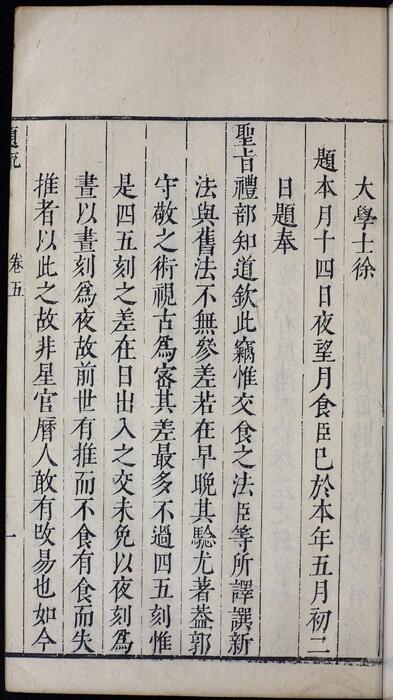 大學士徐
題本月十四日夜望月食臣已於本年五月初二
日題奉
聖旨禮部知道欽此竊惟交食之法臣等所譯譔新
法與舊法不無參差若在早晚其驗尤著葢郭
守敬之術視古爲密其差最多不過四五刻惟
是四五刻之差在日出入之交未免以夜刻爲
晝以晝刻爲夜故前世有推而不食有食而失
推者以此之故非星官曆人敢有攺易也如今
卷五
一